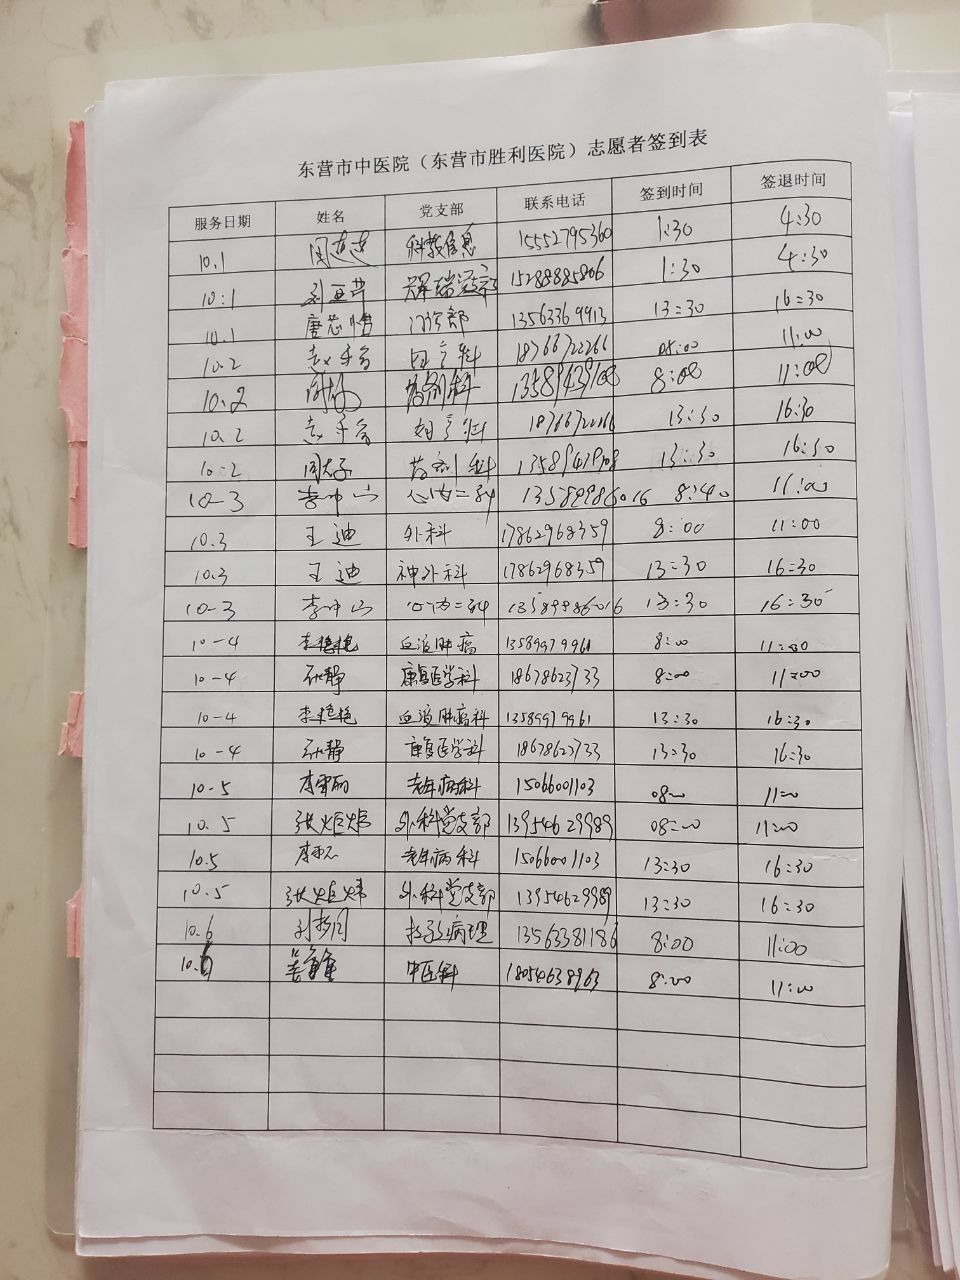 东营市中医院（东营市胜利医院）志愿者签到表
服务日期 姓名 党支部 联系电话 签到时间 签退时间
10.1 周 科教信息 15552795360 1:30 4:30
10.1 刘亚芹 15288885806 1:30 4:30
10.1 唐芯 门诊部 13563369913 13:30 16:30
10.2 科 18766722266 08:00 11:00
10.2 药剂科 8:00 11:00
10.2 妇产科 18766722266 13:30 16:30
10.2 周 药剂科 13:30 16:30
10-3 李中山 心内二科 13589986016 8:40 11:00
10.3 王迪 外科 17862968359 8:00 11:00
10.3 王迪 神外科 17862968359 13:30 16:30
10-3 李中山 心内二科 13589986016 13:30 16:30
10-4 李艳艳 血液肿瘤 13589979961 8:00 11:00
10-4 张静 康复医学科 18678623733 8:00 11:00
10-4 李艳艳 血液肿瘤科 13589979961 13:30 16:30
10-4 张静 康复医学科 18678623733 13:30 16:30
10-5 李 老年病科 15066001103 08:00 11:00
10.5 张炬炜 外科党支部 13954629989 08:00 11:00
10.5 李 老年病科 15066001103 13:30 16:30
10.5 张炬炜 外科党支部 13954629989 13:30 16:30
10.6 刘 病理 13563381186 8:00 11:00
10.6 姜 中医科 18054638963 8:00 11:00